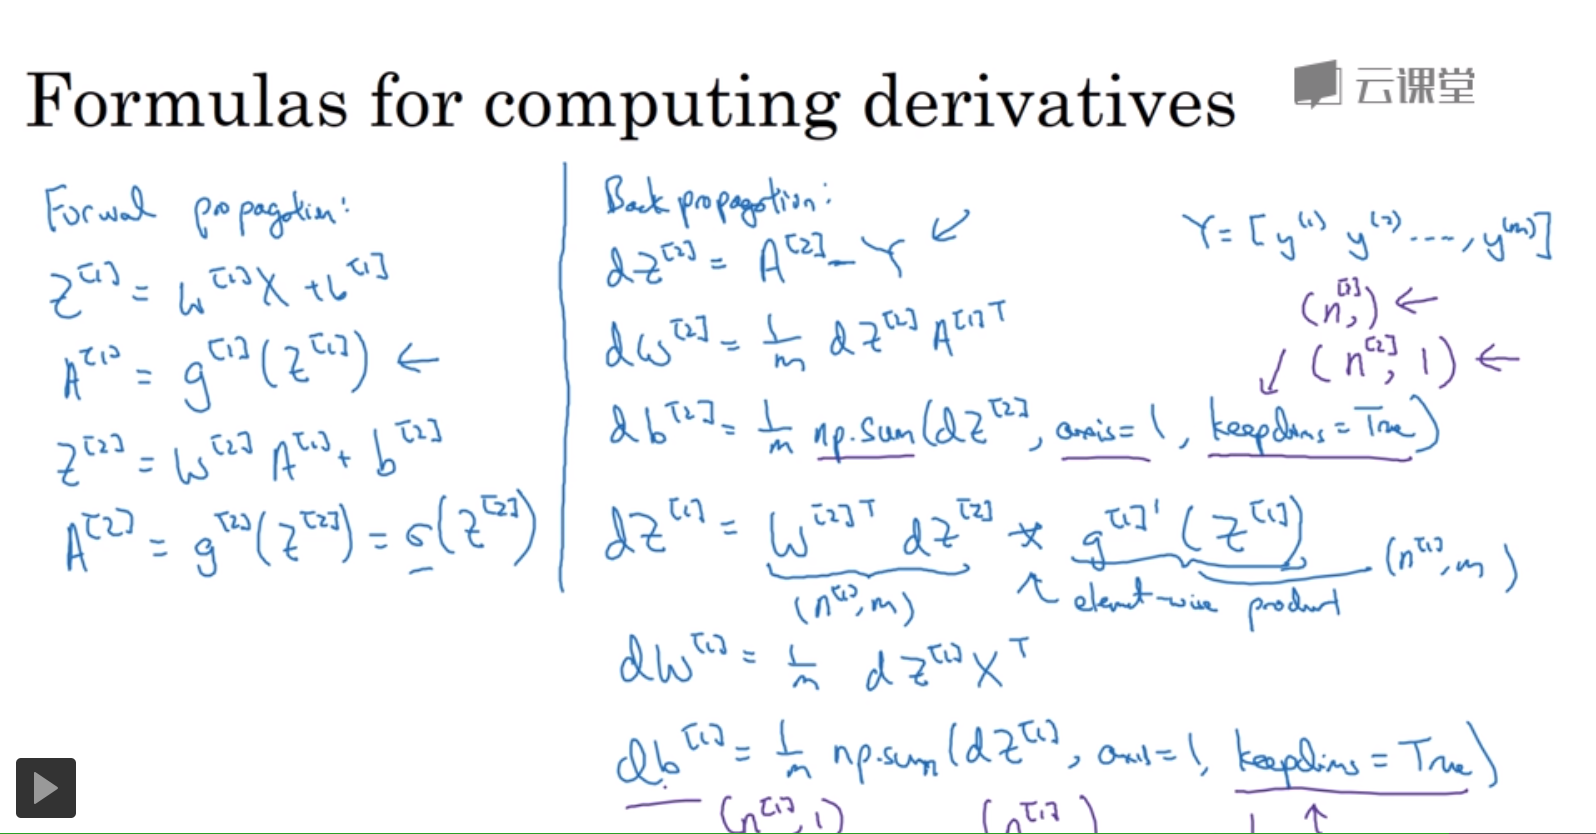 Formulas for computing derivatives
云课堂
Forwal propagation:
Z^[1] = W^[1]X + b^[1]
A^[1] = g^[1](Z^[1]) ←
Z^[2] = W^[2] A^[1] + b^[2]
A^[2] = g^[2](Z^[2]) = σ(Z^[2])
Back propagation:
dZ^[2] = A^[2] - Y ↙
Y = [y^(1) y^(2) ...., y^(m)]
dW^[2] = 1/m dZ^[2] A^[1]T
(n^[2],) ←
↙ (n^[2], 1) ←
db^[2] = 1/m np.sum(dZ^[2], axis=1, keepdims=True)
dZ^[1] = W^[2]T dZ^[2] * g^[1]'(Z^[1])
(n^[1], m) ↖ element-wise product (n^[1], m)
dW^[1] = 1/m dZ^[1] X^T
db^[1] = 1/m np.sum(dZ^[1], axis=1, keepdims=True)
(n^[1], 1) (n^[1]) ↑